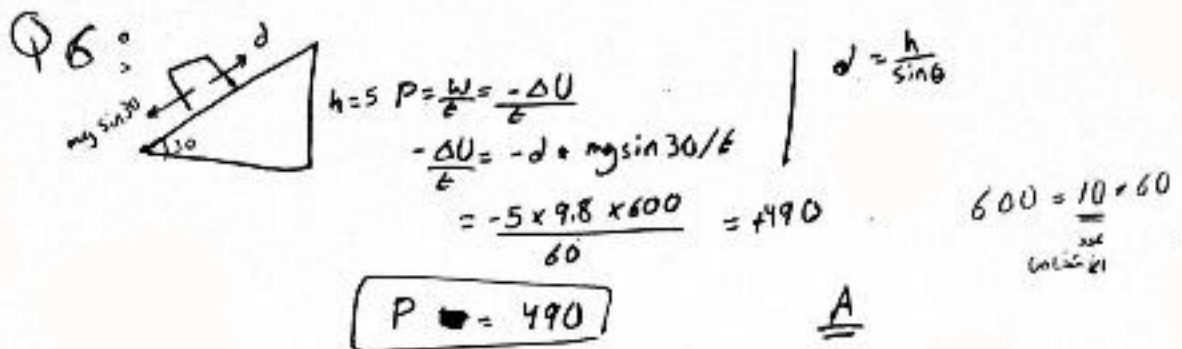 Q6:
d
mg sin 30
30
h=5
P = W/t = -ΔU/t
-ΔU/t = -d * mg sin 30/t
= -5 x 9.8 x 600 / 60 = +490
P = 490
A
d = h/sinθ
600 = 10 * 60
عدد
الاشخاص